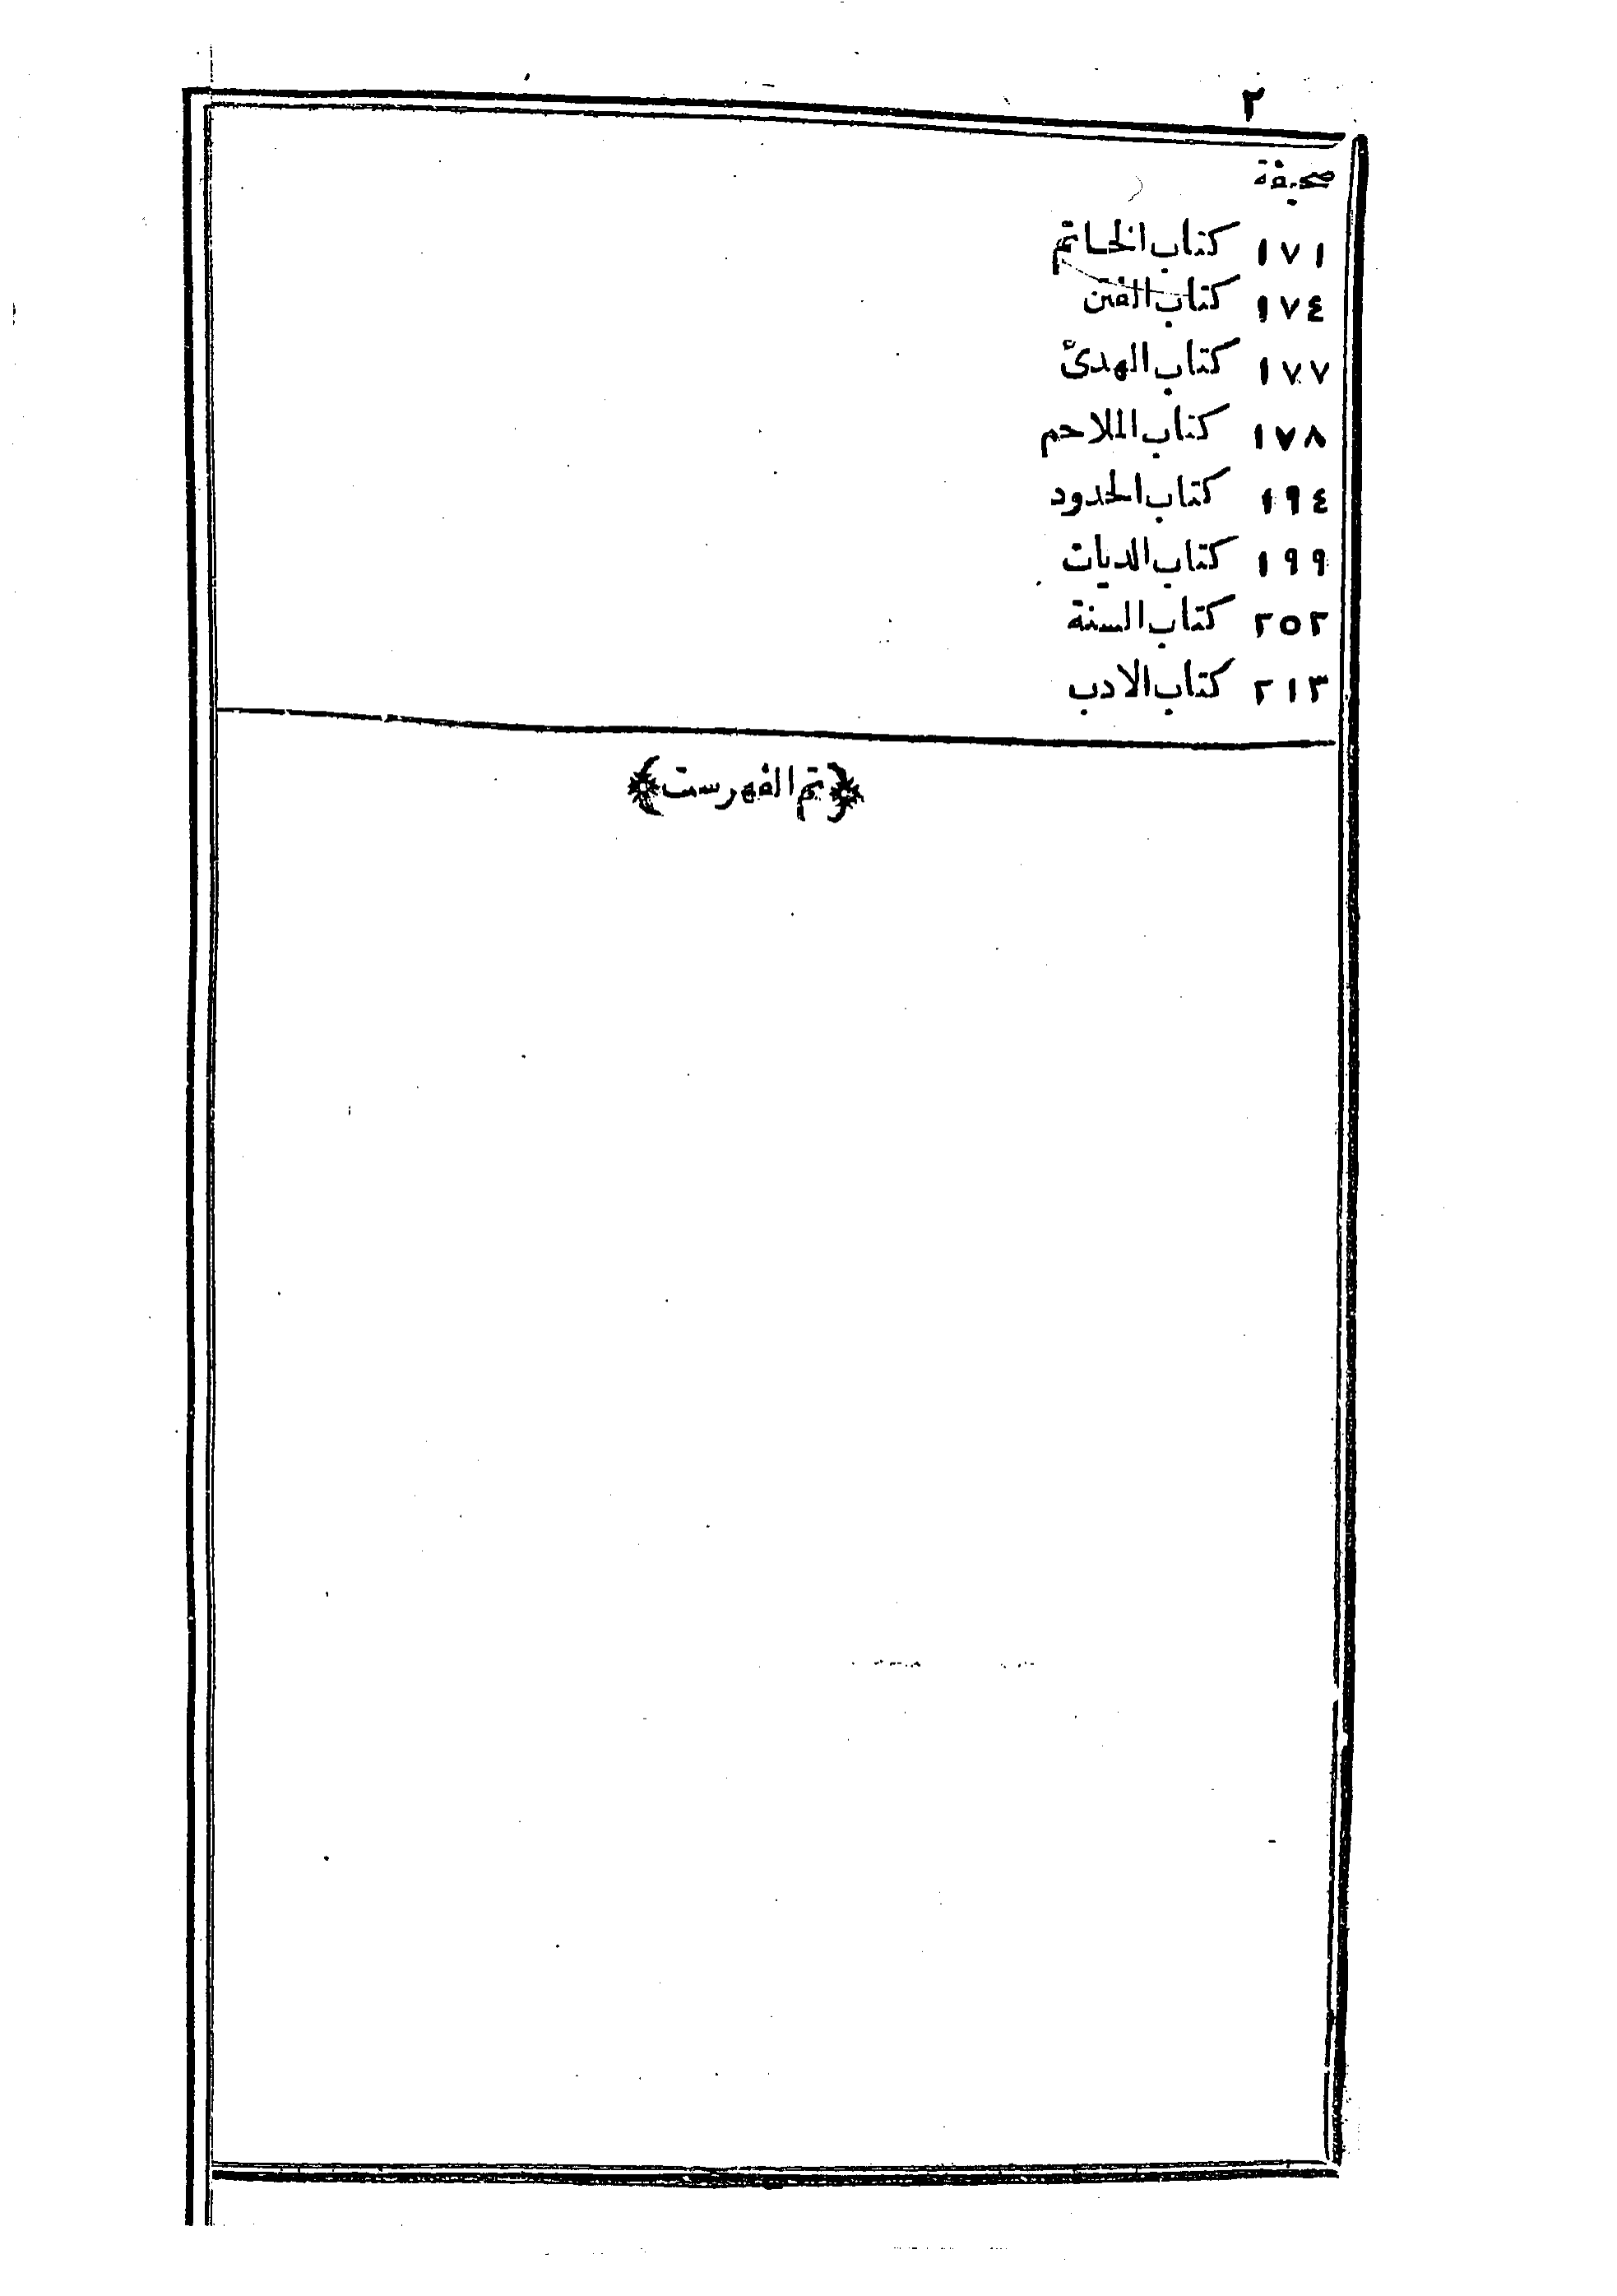 ٢
صحيفة
١٧١ كتاب الخاتم
١٧٤ كتاب الفتن
١٧٧ كتاب الهدىّ
١٧٨ كتاب الملاحم
١٩٤ كتاب الحدود
١٩٩ كتاب الديات
٢٥٢ كتاب السنة
٢١٣ كتاب الادب
﴿تم الفهرست﴾